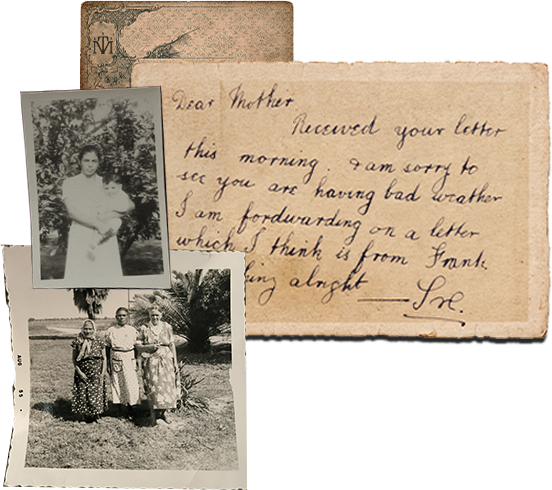 Dear Mother
Received your letter
this morning. I am sorry to
see you are having bad weather
I am fordwarding on a letter
which I think is from Frank.
alright —
AUG 55